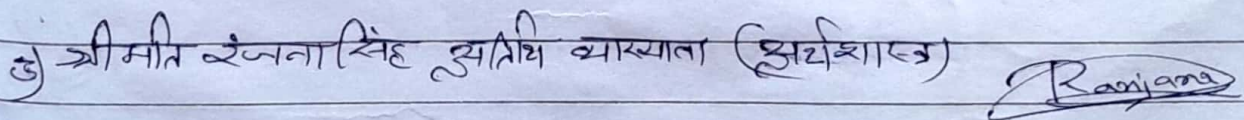 3) श्रीमति रंजना सिंह अतिथि व्याख्याता (अर्थशास्त्र) Ranjana